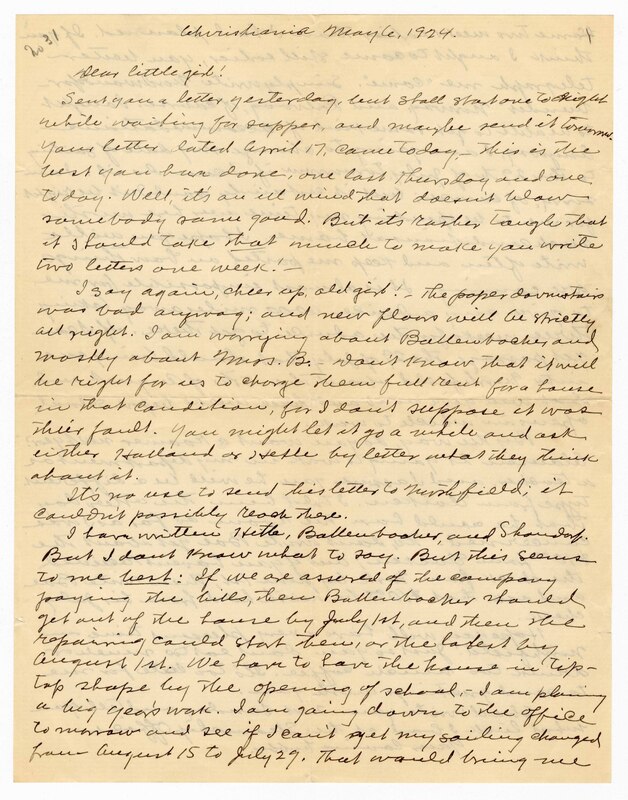 Christiania May 6, 1924.
Dear little girl!
Sent you a letter yesterday, but shall start one tonight
while waiting for supper, and maybe send it tomorrow.
Your letter, dated April 17, came today,- this is the
best you have done, one last Thursday and one
today. Well, it's an ill wind that doesn't blow
somebody some good. But it's rather tough that
it should take that much to make you write
two letters one week! -
I say again, cheer up, old girl! - The paper downstairs
was bad anyway; and new floors will be strictly
all right. I am worrying about Ballenbacher and
mostly about Mrs. B. - Don't know that it will
be right for us to charge them full rent for a house
in that condition, for I don't suppose it was
their fault. You might let it go a while and ask
either Holland or Hetle by letter what they think
about it.
It's no use to send this letter to Northfield; it
couldn't possibly reach there.
I have written Hetle, Ballenbacher, and
But I don't know what to say. But this seems
to me best: If we are assered of the company
paying the bills, then Ballenbacher should
get out of the house by July 1st, and then the
repairing could start then, or the latest by
August 1st. We have to have the house in tip-
top shape by the opening of school,- I am planning
a big year's work. I am going down to the office
tomorrow and see if I can't get my sailing changed
from August 15 to July 29. That would bring me